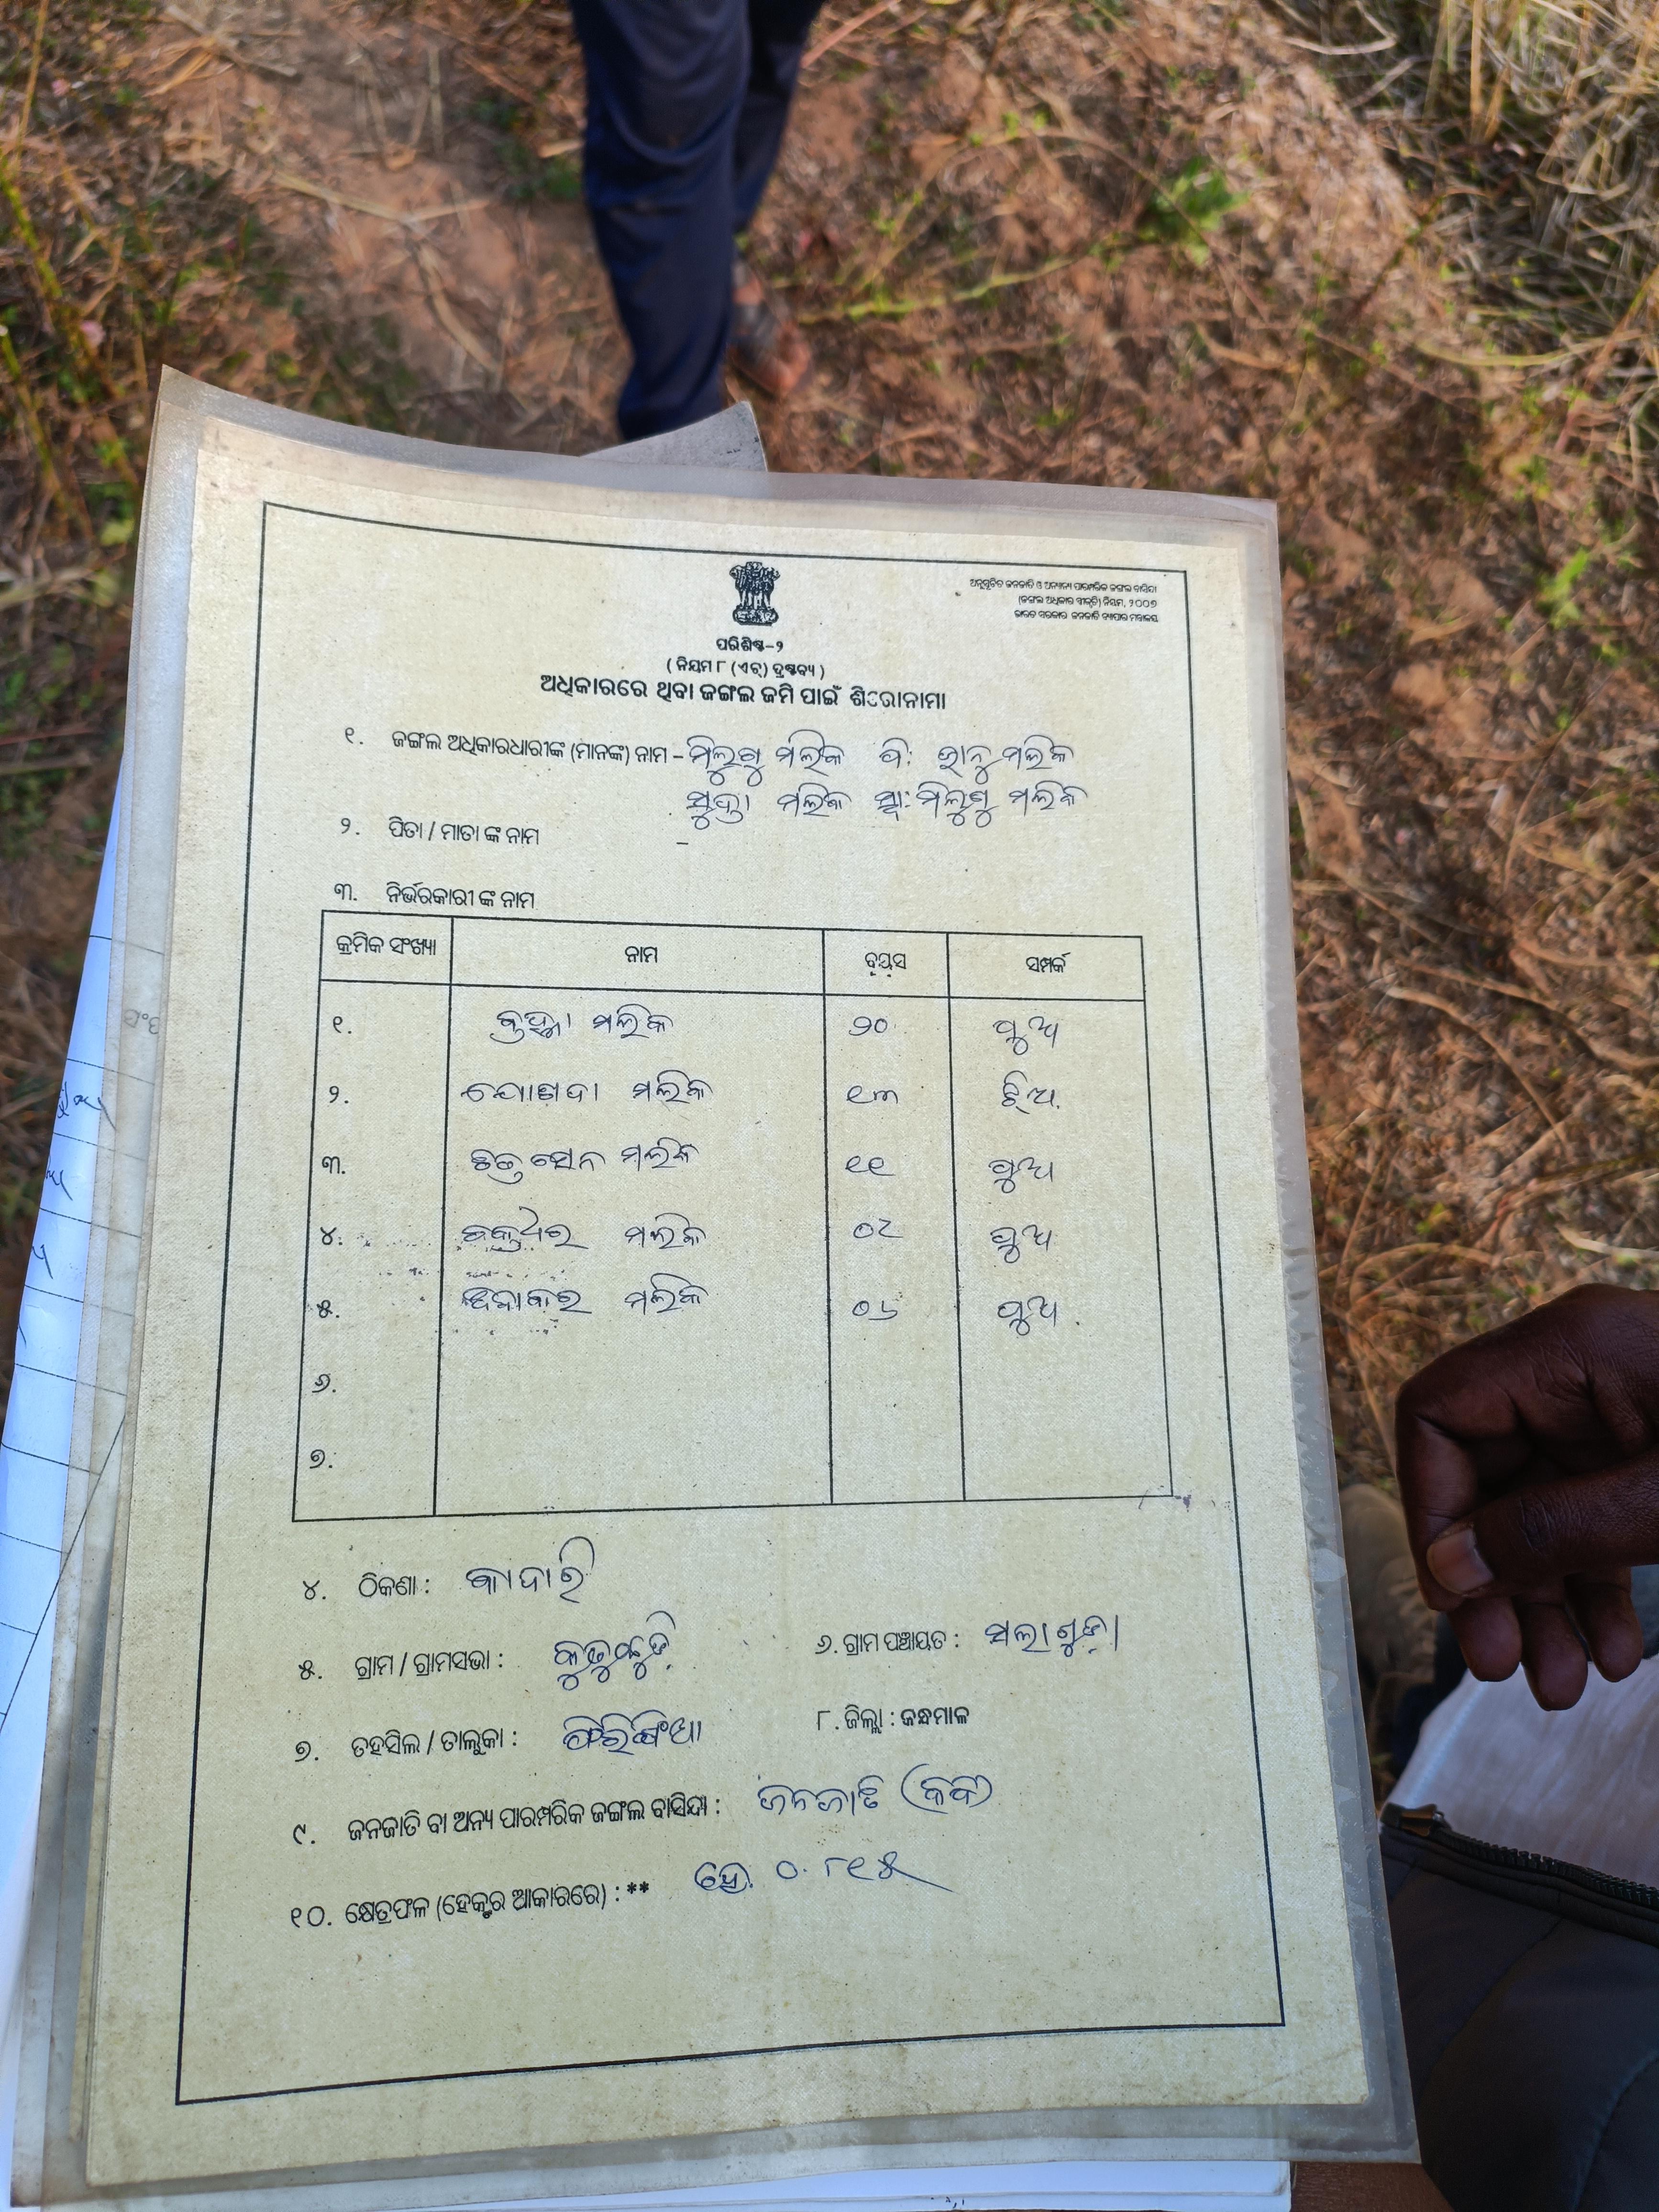 ଅନୁସୂଚିତ ଜନଜାତି ଓ ଅନ୍ୟାନ୍ୟ ପାରମ୍ପରିକ ଜଙ୍ଗଲ ବାସିନ୍ଦା
(ଜଙ୍ଗଲ ଅଧିକାର ସ୍ୱୀକୃତି) ନିୟମ, ୨୦୦୭
ଭାରତ ସରକାର ଜନଜାତି ବ୍ୟାପାର ମନ୍ତ୍ରାଳୟ
ପରିଶିଷ୍ଟ-୨
( ନିୟମ ୮ (ଏଚ୍) ଦ୍ରଷ୍ଟବ୍ୟ )
ଅଧିକାରରେ ଥିବା ଜଙ୍ଗଲ ଜମି ପାଇଁ ଶିରୋନାମା
୧. ଜଙ୍ଗଲ ଅଧିକାରଧାରୀଙ୍କ (ମାନଙ୍କ) ନାମ – ମିଲୁଗୁ ମଲିକ ପି: ଭାନୁ ମଲିକ
ମଲିକ ସ୍ୱା: ମିଲୁଗୁ ମଲିକ
୨. ପିତା / ମାତା ଙ୍କ ନାମ –
୩. ନିର୍ଭରକାରୀ ଙ୍କ ନାମ
କ୍ରମିକ ସଂଖ୍ୟା ନାମ ବୟସ ସମ୍ପର୍କ
୧. ମଲିକ ୨୦ ପୁଅ
୨. ଯୋଶଦା ମଲିକ ୧୩ ଝିଅ
୩. ମଲିକ ୧୧ ପୁଅ
୪. ଚକ୍ରଧର ମଲିକ ୦୮ ପୁଅ
୫. ମଲିକ ୦୬ ପୁଅ
୬.
୭.
୪. ଠିକଣା : କାଦାରି
୫. ଗ୍ରାମ / ଗ୍ରାମସଭା :
୬. ଗ୍ରାମ ପଞ୍ଚାୟତ : ସଲାଗୁଡ଼ା
୭. ତହସିଲ / ତାଲୁକା : ଫିରିଙ୍ଗିଆ
୮. ଜିଲ୍ଲା : କନ୍ଧମାଳ
୯. ଜନଜାତି ବା ଅନ୍ୟ ପାରମ୍ପରିକ ଜଙ୍ଗଲ ବାସିନ୍ଦା : ଜନଜାତି (କନ୍ଧ)
୧୦. କ୍ଷେତ୍ରଫଳ (ହେକ୍ଟର ଆକାରରେ) : ** ହେ. ୦.୮୧୫